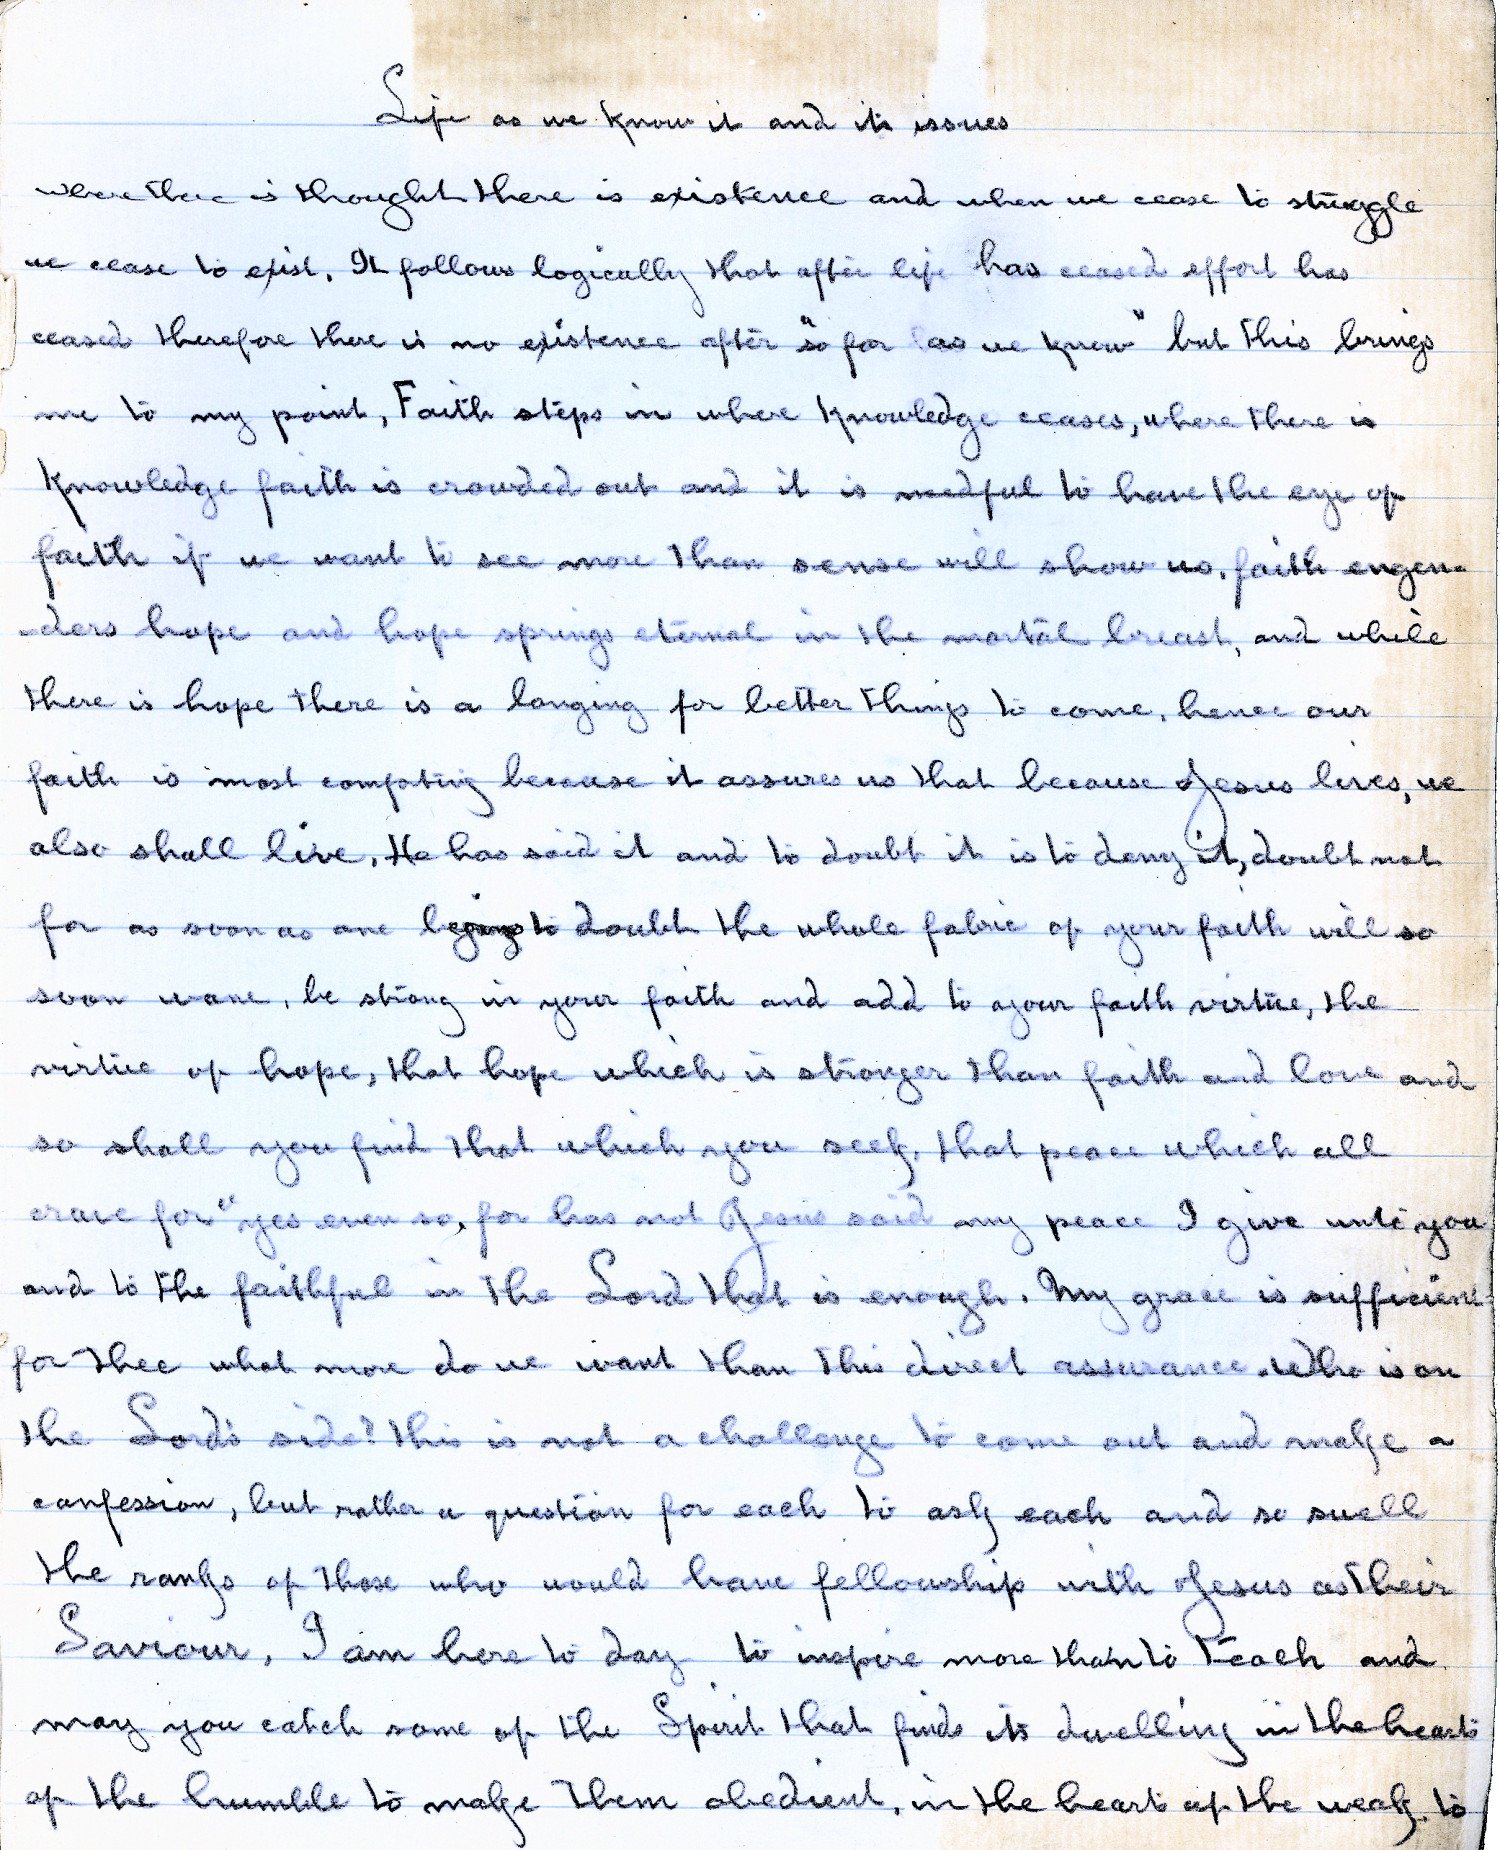 Life as we know it and its issues
where there is thought there is existence and when we cease to struggle
we cease to exist. It follows logically that after life has ceased effort has
ceased therefore there is no existence after "so far as we know" but this brings
me to my point, Faith steps in where knowledge ceases, where there is
knowledge faith is crowded out and it is needful to have the eye of
faith if we want to see more than sense will show us. faith engen-
-ders hope and hope springs eternal in the mortal breast, and while
there is hope there is a longing for better things to come. hence our
faith is most comforting because it assures us that because Jesus lives, we
also shall live. He has said it and to doubt it is to deny it, doubt not
for as soon as one begins to doubt the whole fabric of your faith will so
soon wane, be strong in your faith and add to your faith virtue, the
virtue of hope, that hope which is stronger than faith and love and
so shall you find that which you seek. that peace which all
crave for "yes even so, for has not Jesus said my peace I give unto you
and to the faithful in the Lord that is enough. My grace is sufficient
for thee what more do we want than this direct assurance. Who is on
the Lord's side? this is not a challenge to come out and make a
confession, but rather a question for each to ask each and so swell
the ranks of those who would have fellowship with Jesus as their
Saviour, I am here to day to inspire more than to teach and
may you catch some of the Spirit that finds its dwelling in the hearts
of the humble to make them obedient, in the hearts of the weak, to